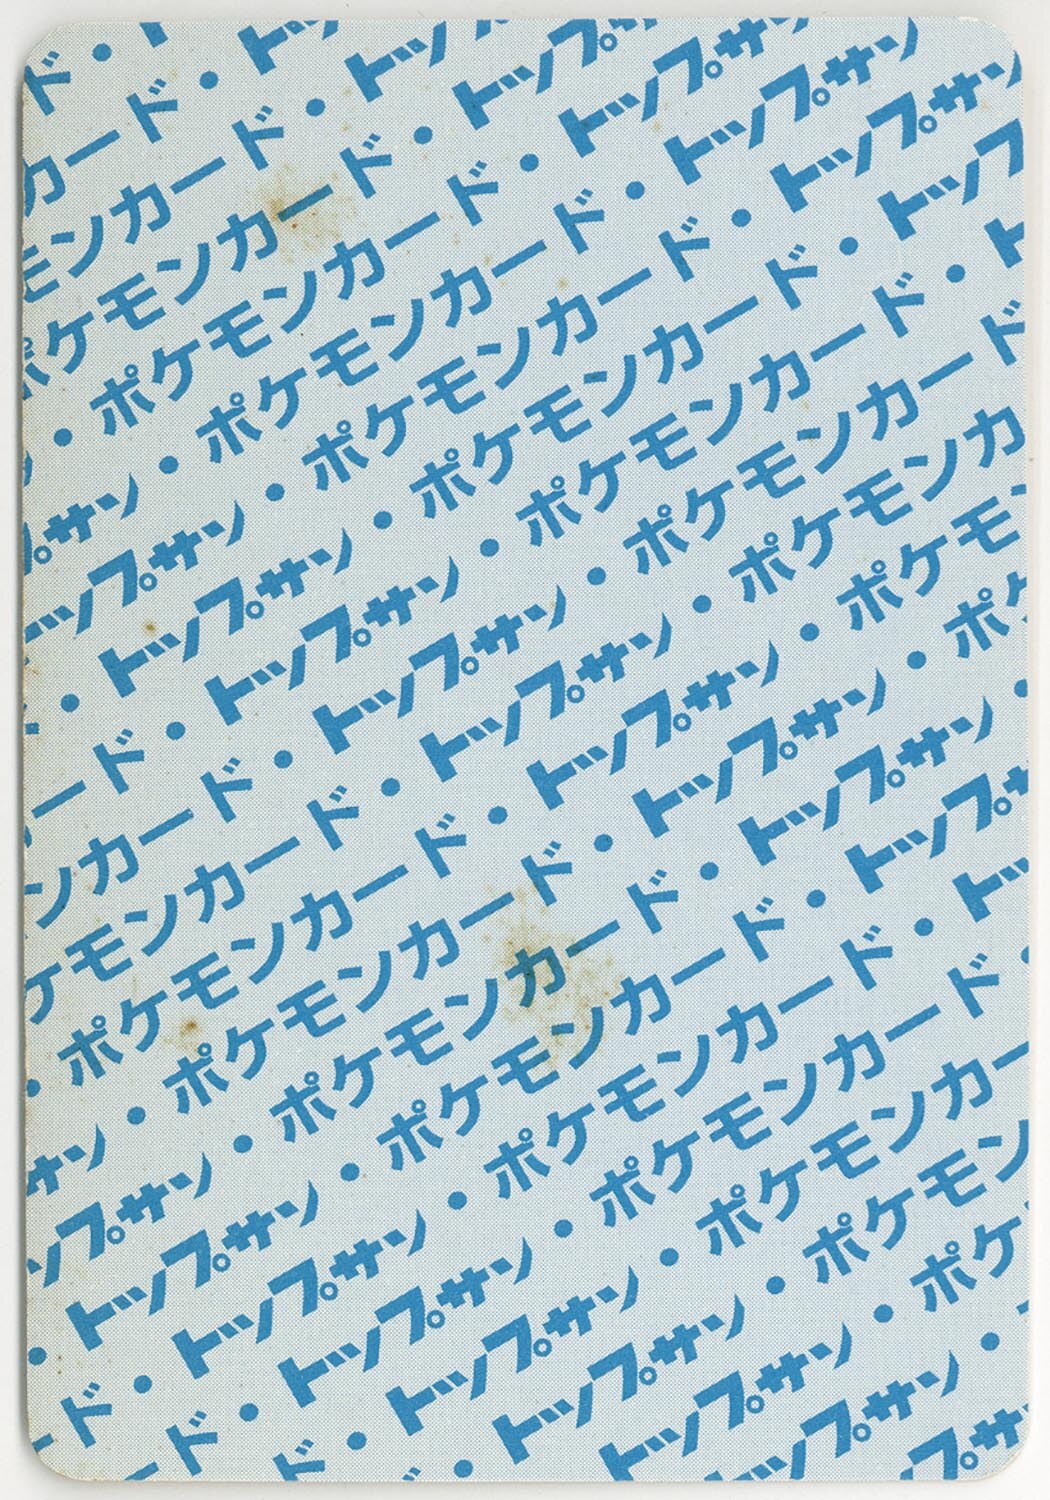 ド・
カード・ト
モンカード・トッ
ポケモンカード・トップ
・ポケモンカード・トップサ
プサン・ポケモンカード・トップサン
ップサン・ポケモンカード・トップサン
・トップサン・ポケモンカード・トップ
ード・トップサン・ポケモンカード・ト
ンカード・トップサン・ポケモンカード
ケモンカード・トップサン・ポケモンカ
・ポケモンカード・トップサン・ポケモン
サン・ポケモンカード・トップサン・ポケ
ップサン・ポケモンカード・トップサン・
・トップサン・ポケモンカード・トップ
ド・トップサン・ポケモンカード・ト
ド・トップサン・ポケモンカード・
ド・トップサン・ポケモンカー
・トップサン・ポケモン
トップサン・ポケ
ップサン・
プサ